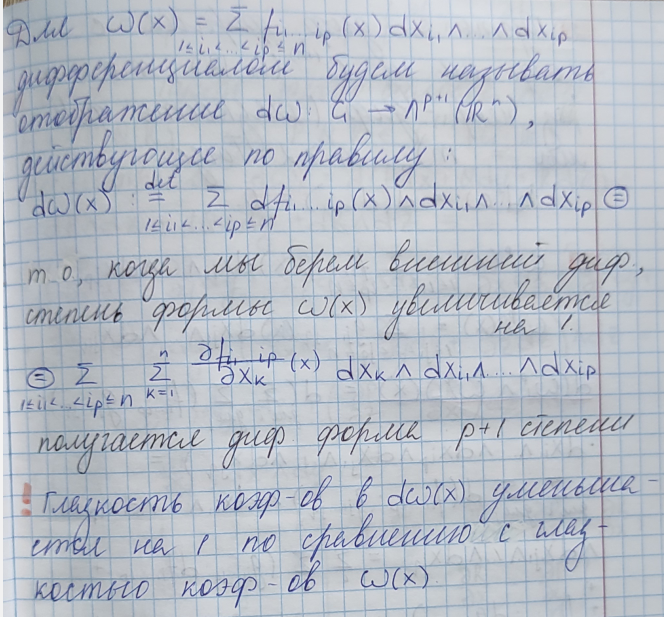 Для ω(x) = Σ fi₁...ip (x) dxi₁ ∧ ... ∧ dxip
1≤i₁<...<ip≤n
дифференциалом будем называть
отображение dω: G → Λᵖ⁺¹(ℝⁿ),
действующее по правилу:
dω(x) def= Σ dfi₁...ip (x) ∧ dxi₁ ∧ ... ∧ dxip ⊜
1≤i₁<...<ip≤n
т о, когда мы берем внешний диф,
степень формы ω(x) увеличивается
на 1.
⊜ Σ Σ ∂fi₁ ip/∂xk (x) dxk ∧ dxi₁ ∧ ... ∧ dxip
1≤i₁<...<ip≤n k=1 n
получается диф форма p+1 степени
! Гладкость коэф-ов в dω(x) уменьша-
ется на 1 по сравнению с глад-
костью коэф-ов ω(x)